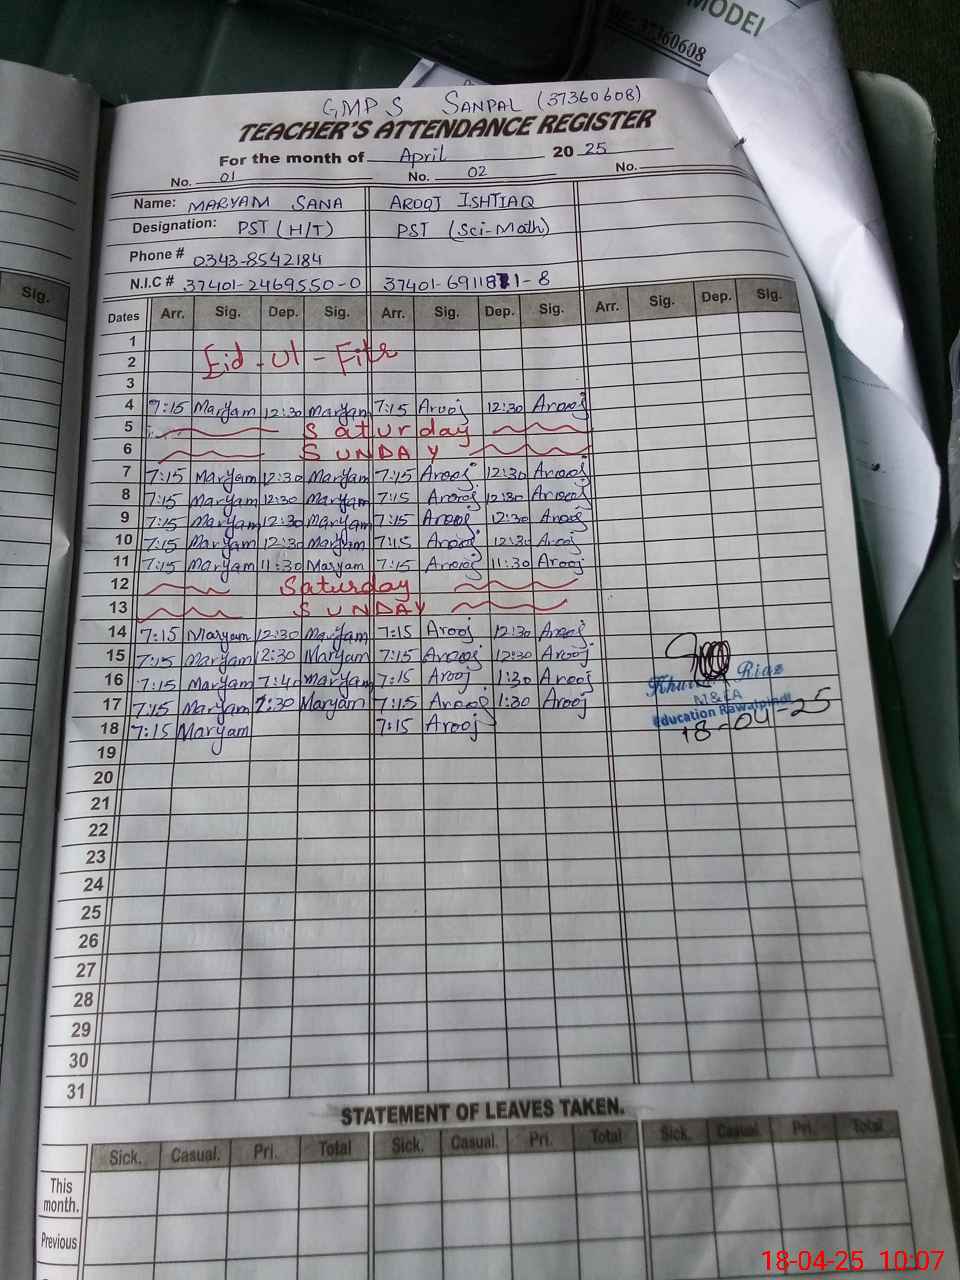 MODEL
37360608
GMPS SANPAL (37360608)
TEACHER'S ATTENDANCE REGISTER
For the month of April 2025
No. 01 No. 02 No.
Name: MARYAM SANA AROOJ ISHTIAQ
Designation: PST (H/T) PST (Sci-Math)
Phone # 0343-8542184
N.I.C # 37401-2469550-0 37401-6911871-8
Sig.
Dates Arr. Sig. Dep. Sig. Arr. Sig. Dep. Sig. Arr. Sig. Dep. Sig.
1
2 Eid-ul-Fitr
3
4 7:15 Maryam 12:30 Maryam 7:15 Arooj 12:30 Arooj
5 Saturday
6 SUNDAY
7 7:15 Maryam 12:30 Maryam 7:15 Arooj 12:30 Arooj
8 7:15 Maryam 12:30 Maryam 7:15 Arooj 12:30 Arooj
9 7:15 Maryam 12:30 Maryam 7:15 Arooj 12:30 Arooj
10 7:15 Maryam 12:30 Maryam 7:15 Arooj 12:30 Arooj
11 7:15 Maryam 11:30 Maryam 7:15 Arooj 11:30 Arooj
12 Saturday
13 SUNDAY
14 7:15 Maryam 12:30 Maryam 7:15 Arooj 12:30 Arooj
15 7:15 Maryam 12:30 Maryam 7:15 Arooj 12:30 Arooj
16 7:15 Maryam 7:40 Maryam 7:15 Arooj 1:30 Arooj
17 7:15 Maryam Maryam 7:15 Arooj 1:30 Arooj
18 7:15 Maryam 7:15 Arooj
Riaz
M&EA
Education Rawalpindi
18-04-25
19
20
21
22
23
24
25
26
27
28
29
30
31
STATEMENT OF LEAVES TAKEN.
Sick. Casual. Pri. Total Sick. Casual. Pri. Total Sick. Casual. Pri. Total
This
month.
Previous
18-04-25 10:07